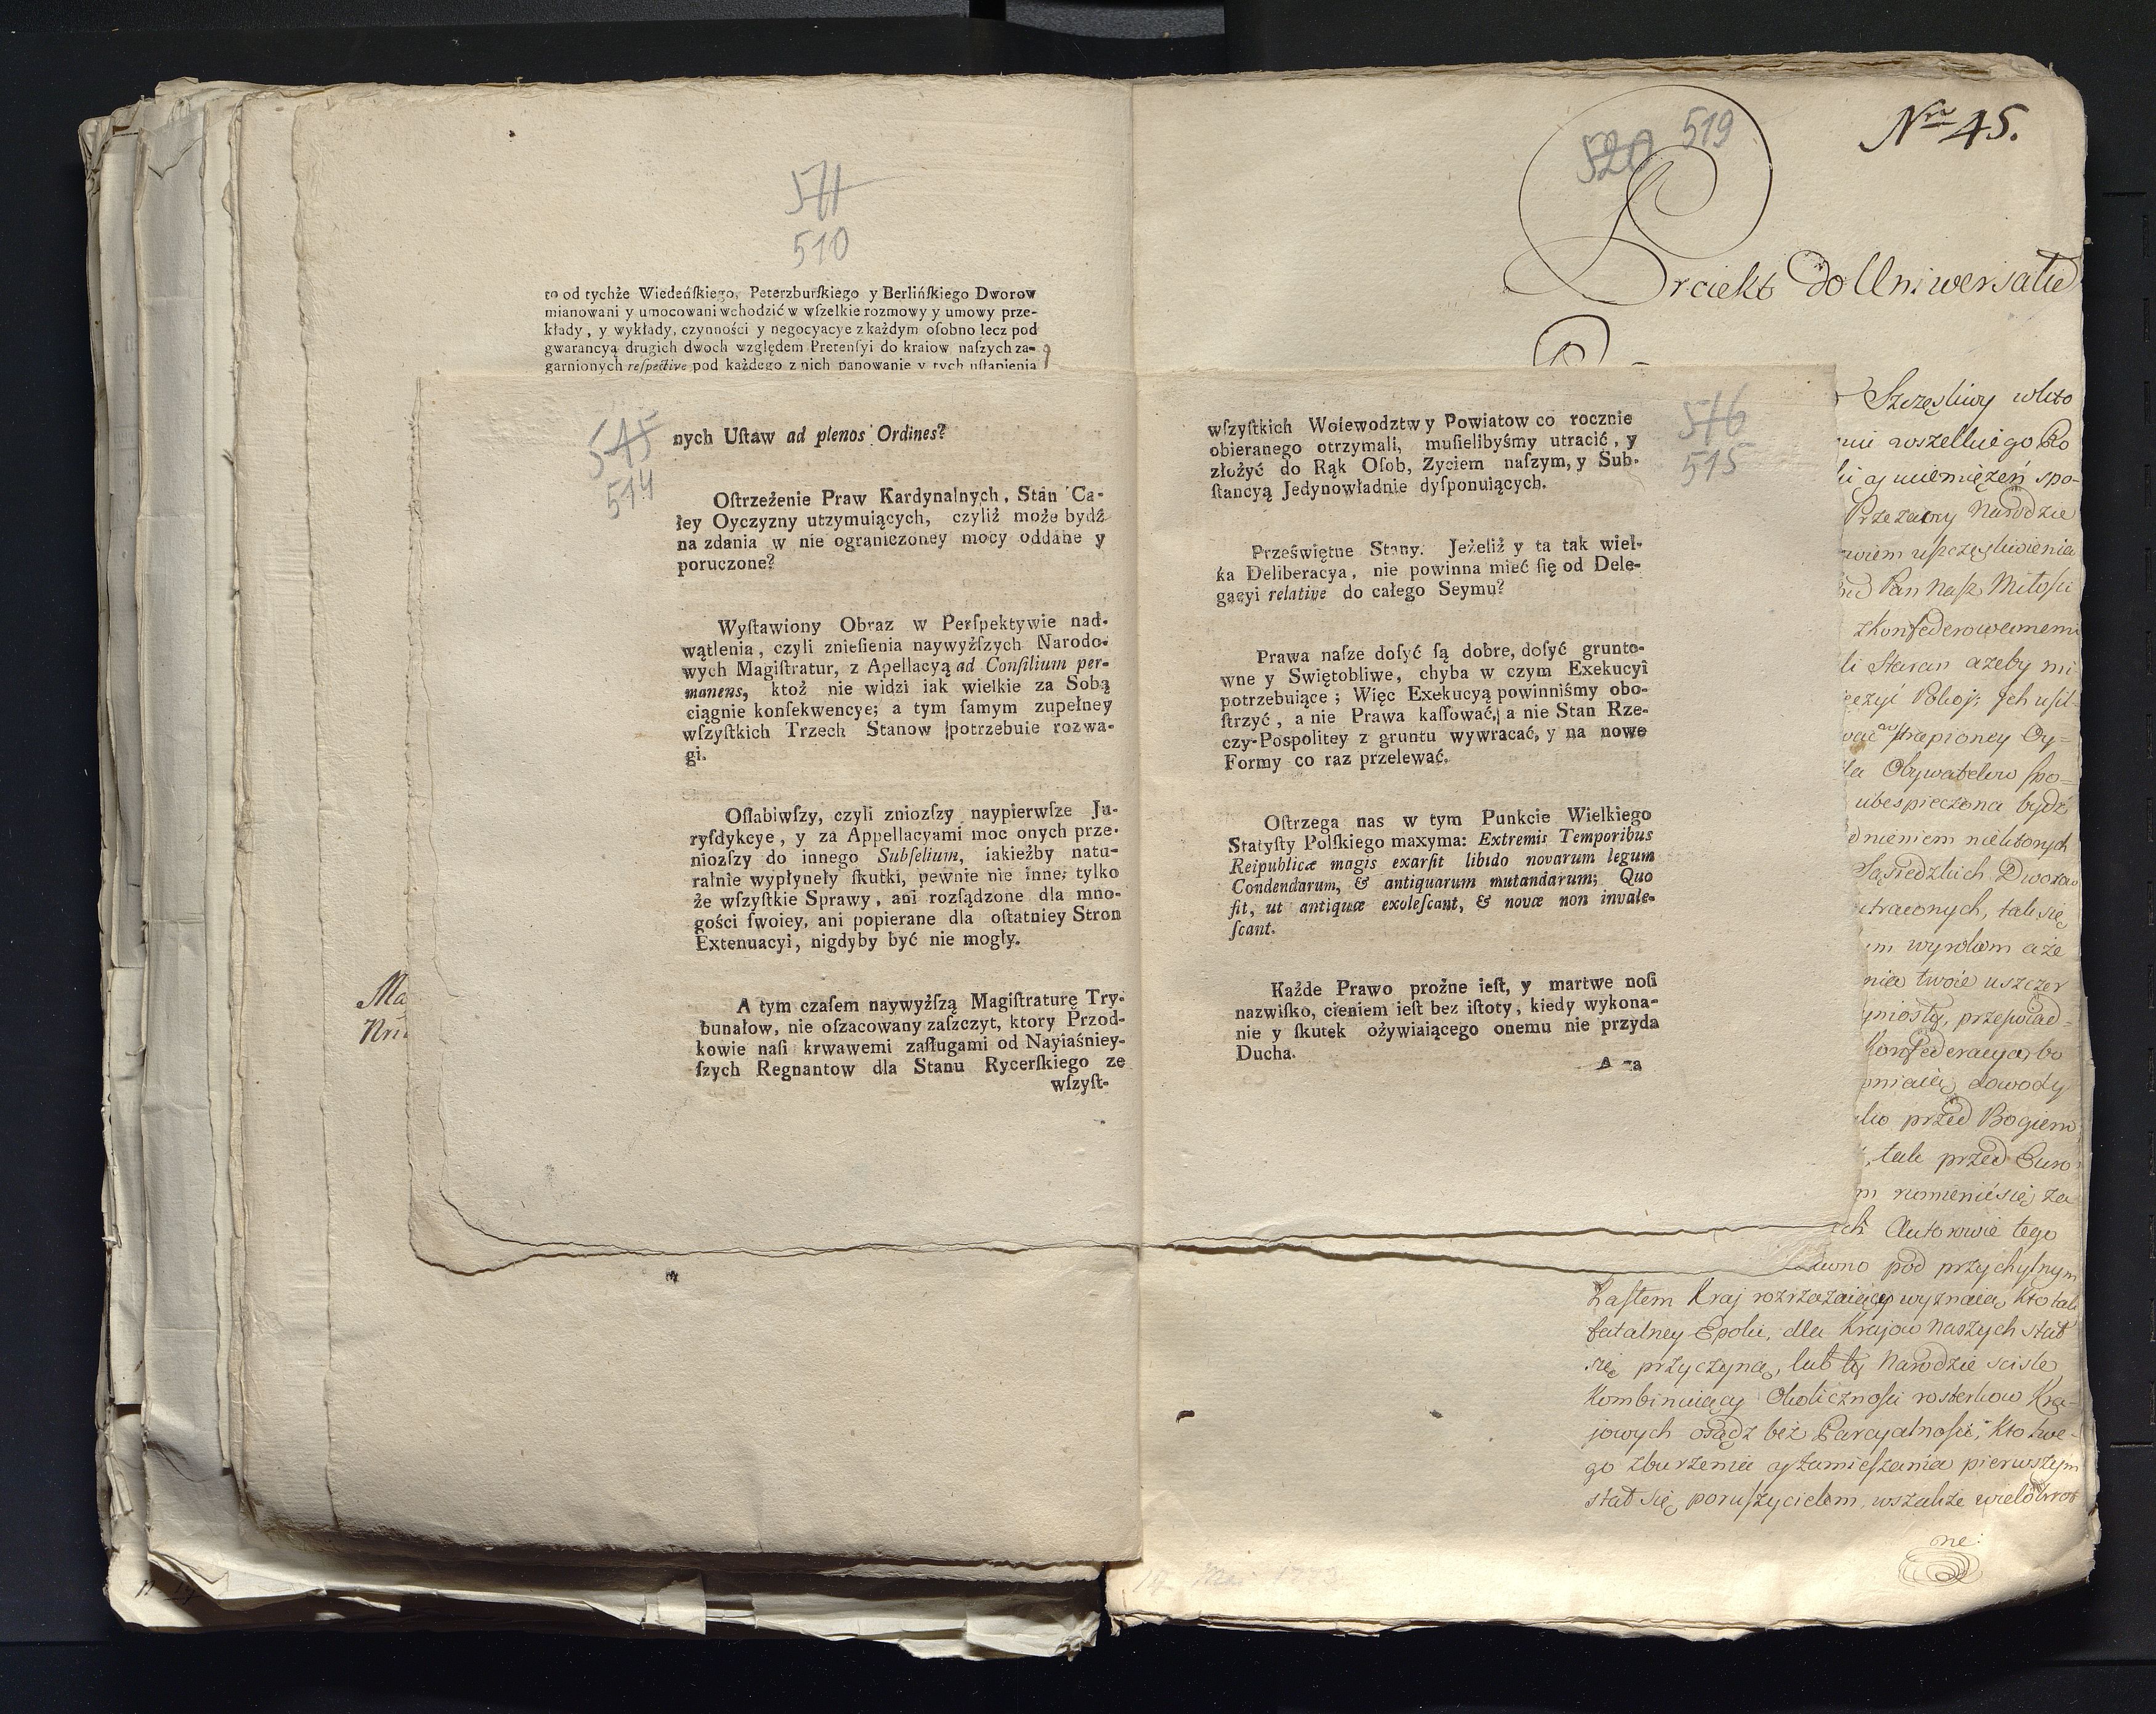 571
510
to od tychże Wiedeńſkiego, Peterzburſkiego y Berlińſkiego Dworow
mianowani y umocowani wchodzić w wſzelkie rozmowy y umowy prze-
kłady, y wykłady, czynności y negocyacye z każdym oſobno lecz pod
gwarancyą drugich dwoch względem Pretenſyi do kraiow naſzych za-
garnionych reſpective pod każdego z nich panowanie y tych uſtąpienia
Ma
545
514
nych Uſtaw ad plenos Ordines?
Oſtrzeżenie Praw Kardynalnych, Stan Ca-
łey Oyczyzny utzymuiących, czyliż może bydź
na zdania w nie ograniczoney mocy oddane y
poruczone?
Wyſtawiony Obraz w Perſpektywie nad-
wątlenia, czyli znieſienia naywyżſzych Narodo-
wych Magiſtratur, z Apellacyą ad Conſilium per-
manens, ktoż nie widzi iak wielkie za Sobą
ciągnie konſekwencye; a tym ſamym zupełney
wſzyſtkich Trzech Stanow potrzebuie rozwa-
gi.
Oſłabiwſzy, czyli zniozſzy naypierwſze Ju-
ryſdykcye, y za Appellacyami moc onych prze-
niozſzy do innego Subſelium, iakieżby natu-
ralnie wypłyneły ſkutki, pewnie nie inne; tylko
że wſzyſtkie Sprawy, ani rozſądzone dla mno-
gości ſwoiey, ani popierane dla oſtatniey Stron
Extenuacyi, nigdyby być nie mogły.
A tym czaſem naywyżſzą Magiſtraturę Try-
bunałow, nie oſzacowany zaſzczyt, ktory Przod-
kowie naſi krwawemi zaſługami od Nayiaśniey-
ſzych Regnantow dla Stanu Rycerſkiego ze
wſzyſt-
576
515
wſzyſtkich Woiewodztw y Powiatow co rocznie
obieranego otrzymali, muſielibyśmy utracić, y
złożyć do Rąk Oſob, Zyciem naſzym, y Sub-
ſtancyą Jedynowładnie dyſponuiących.
Przeświętne Stany. Jeżeliż y ta tak wiel-
ka Deliberacya, nie powinna mieć ſię od Dele-
gacyi relative do całego Seymu?
Prawa naſze doſyć ſą dobre, doſyć grunto-
wne y Swiętobliwe, chyba w czym Exekucyi
potrzebuiące; Więc Exekucyą powinniśmy obo-
ſtrzyć, a nie Prawa kaſſować, a nie Stan Rze-
czy-Poſpolitey z gruntu wywracać, y na nowe
Formy co raz przelewać.
Oſtrzega nas w tym Punkcie Wielkiego
Statyſty Polſkiego maxyma: Extremis Temporibus
Reipublicæ magis exarſit libido novarum legum
Condendarum, & antiquarum mutandarum; Quo
fit, ut antiquæ exoleſcant, & novæ non invale-
ſcant.
Każde Prawo prożne ieſt, y martwe noſi
nazwiſko, cieniem ieſt bez iſtoty, kiedy wykona-
nie y ſkutek ożywiaiącego onemu nie przyda
Ducha.
A za
520 519
Nro 45.
Proiekt do Uniwersału
Szczęśliwy
wszelkiego
uciemiężeń spo-
Przezacny Narodzie
uszczęśliwienia
Pan Nasz Miłości
zkonfederowanemi
Staran azeby
Pokoj, Jch usił-
strapioney Oy-
Obywatelow spo-
ubespieczona bydź
Sąsiedzkich Dworow
straconych, tak się
wyrokom aże
twoie uszczer
przeswiad-
Konfederacya, bo
dowody
przed Bogiem
, tak przed Euro
rumienić się za
Autorowie tego
dawno pod przychylnym
Hasłem Kraj rozrzażaiący wyznaią, Kto tak
fatalney Epoki, dla Krajow Naszych stał
się przyczyną, lub ty Narodzie scisle
Kombinuiący Okoliczności rosterkow Kra-
jowych osądz bez Parcyalności, Kto twe-
go zburzenia y zamieszania pierwszym
stał się poruszycielem, wszakże wielokrot
ne: